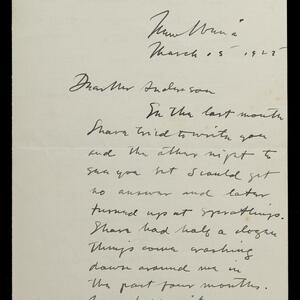 March 15 1925
Dear Mr Anderson
In the last month
I have tried to write you
and the other night to
see you but I could get
no answer and later
turned up at
I have had half a dozen
things come crashing
down around me in
the past four months.